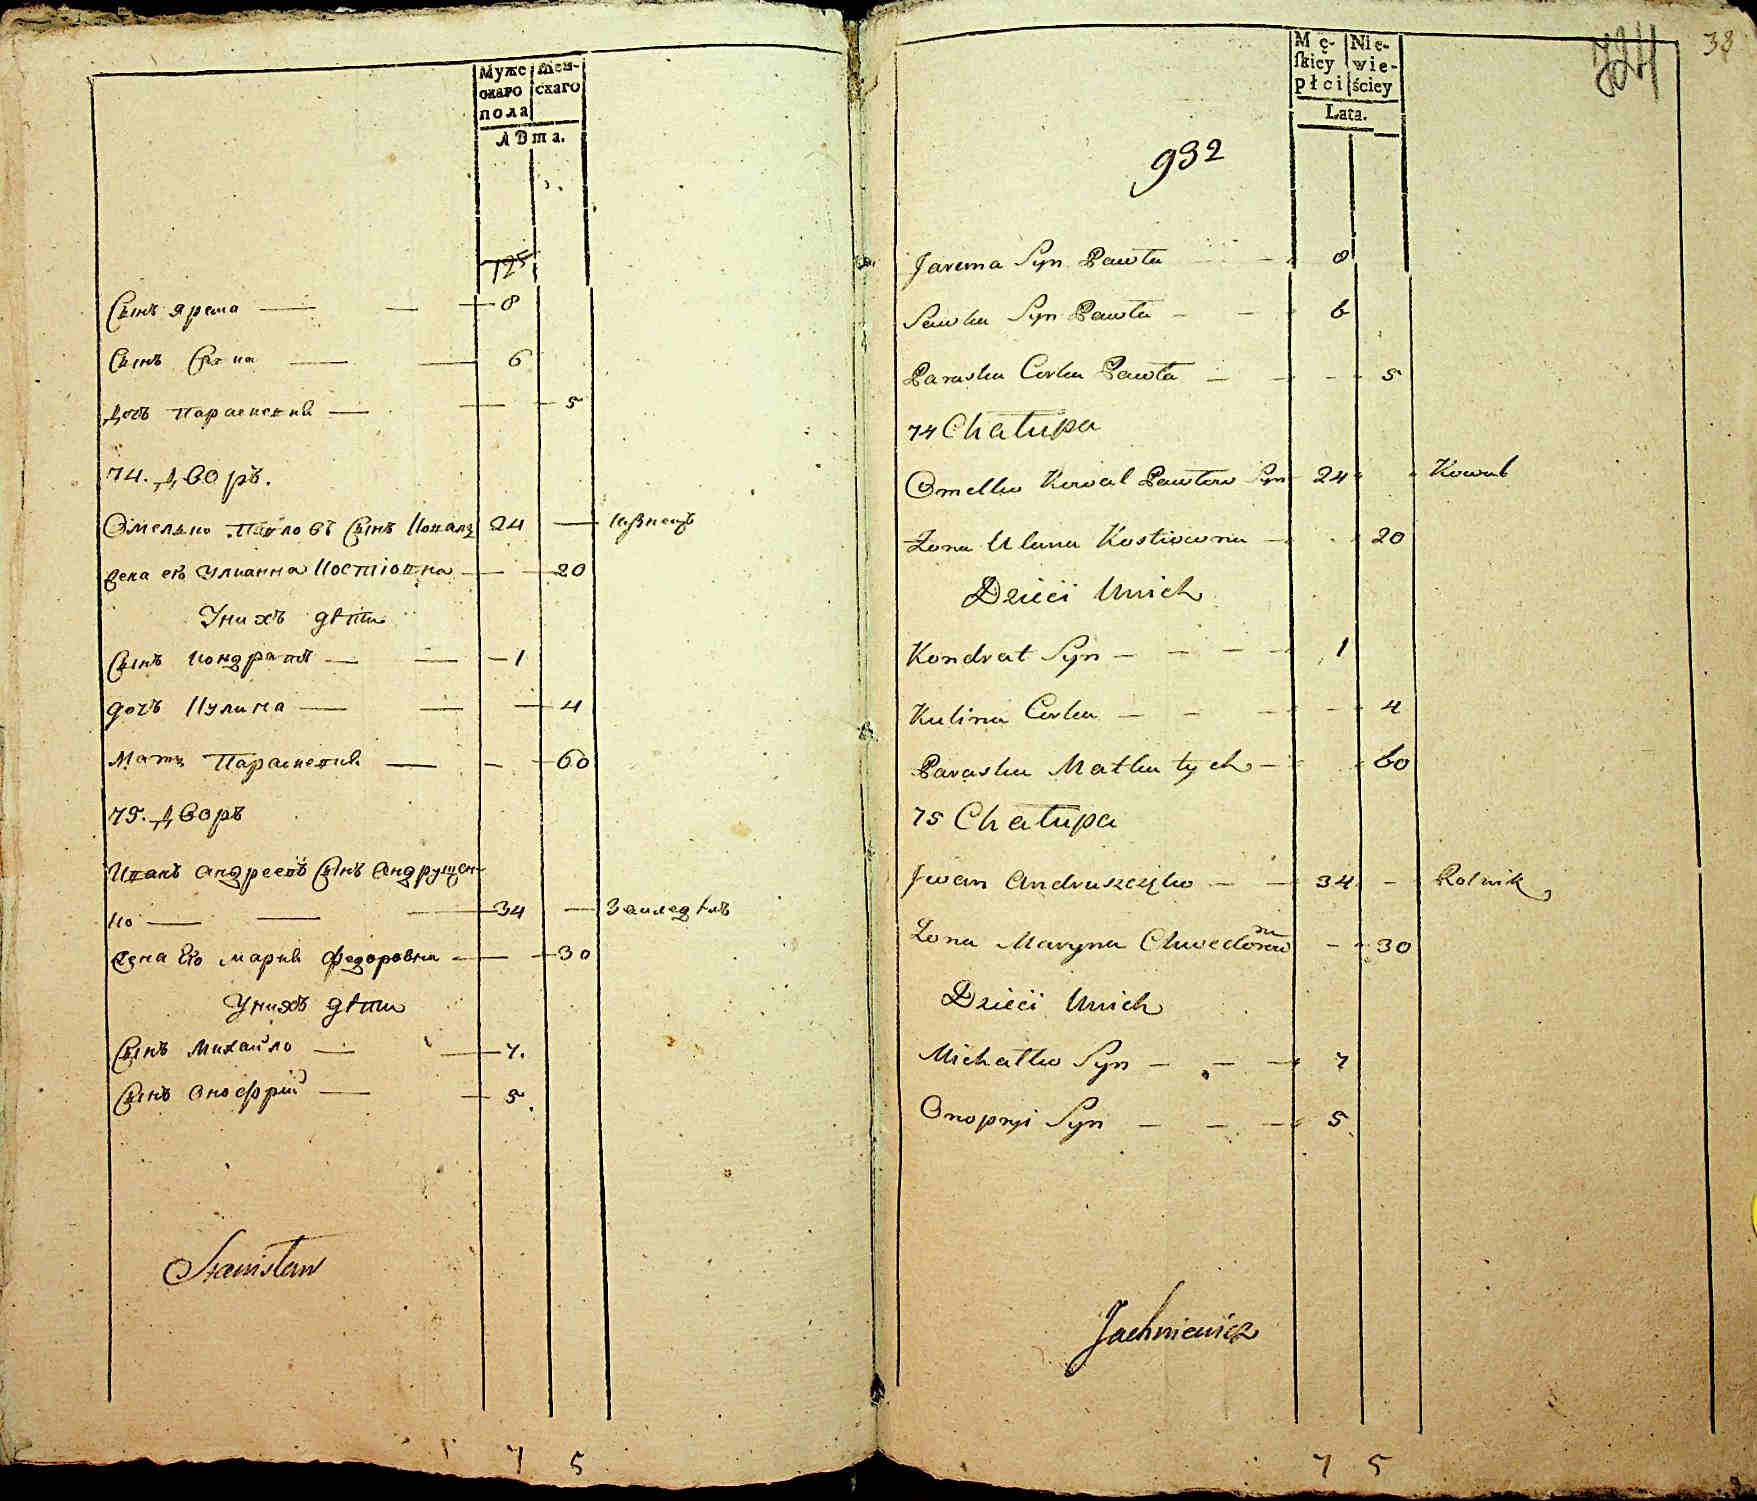 Муже Жен-
скаго скаго
пола
Лѣта.
125
Сынъ Ярема — — 8
Сынъ Савка — — 6
Дочь Параскевия — — — 5
74. Дворъ.
Омелько Павловъ Сынъ Коваль 24 — Кузнецъ
Жена его Улианна Костіовна — — 20
У нихъ дѣти
Сынъ Кондратъ — — — 1
дочь Кулина — — — 4
Мать Параскевия — — — 60
75. Дворъ
Иванъ Андреевъ Сынъ Андрущен-
ко — — — 34 — Заиледѣлъ
Жена Его Мария Федоровна — — — 30
У нихъ дѣти
Сынъ Михайло — — 7.
Сынъ Онофрий — — 5.
Stanisław
7 5
38
Mę- Nie-
ſkiey wie-
płci ściey
Lata.
932
Jarema Syn Pawła - 8
Sawka Syn Pawła - - 6
Paraska Corka Pawła - - - 5
74 Chałupa
Omelko Kowal Pawłow Syn 24 - Kowal
Żona Ulana Kostiowna - - 20
Dzieci Unich
Kondrat Syn - - - - 1
Kulina Corka - - - - 4
Paraska Matka tych - - 60
75 Chałupa
Jwan Andruszczęko - - 34 - Rolnik
Żona Maryna Chwedorowna - - 30
Dzieci Unich
Michałko Syn - - - 7
Onopryi Syn - - - 5
Jachniewicz
7 5